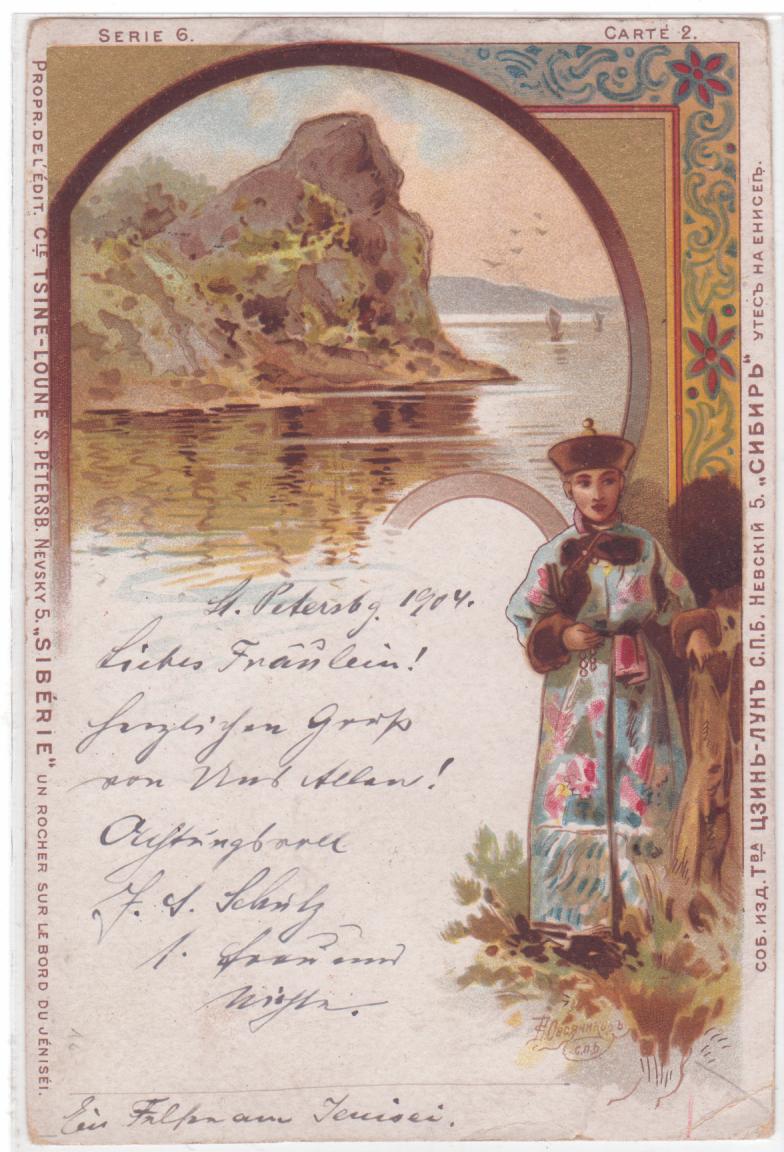 SERIE 6.
CARTE 2.
PROPR. DE L'ÉDIT. CIE TSINE-LOUNE S. PETERSB. NEVSKY 5. „SIBÉRIE" UN ROCHER SUR LE BORD DU JÉNISÉI.
СОБ. ИЗД. ТВА ЦЗИНЬ-ЛУНЪ С.П.Б. НЕВСКІЙ 5. „СИБИРЬ" УТЕСЪ НА ЕНИСЕѢ.
St. Petersbg. 1904.
Liebes Fräulein!
Herzlichen Gruß
von Uns Allen!
Achtungsvoll
Schulz
Frau und
Nichte.
Овсячниковъ
С.П.Б
Ein Felsen am Jenisei.